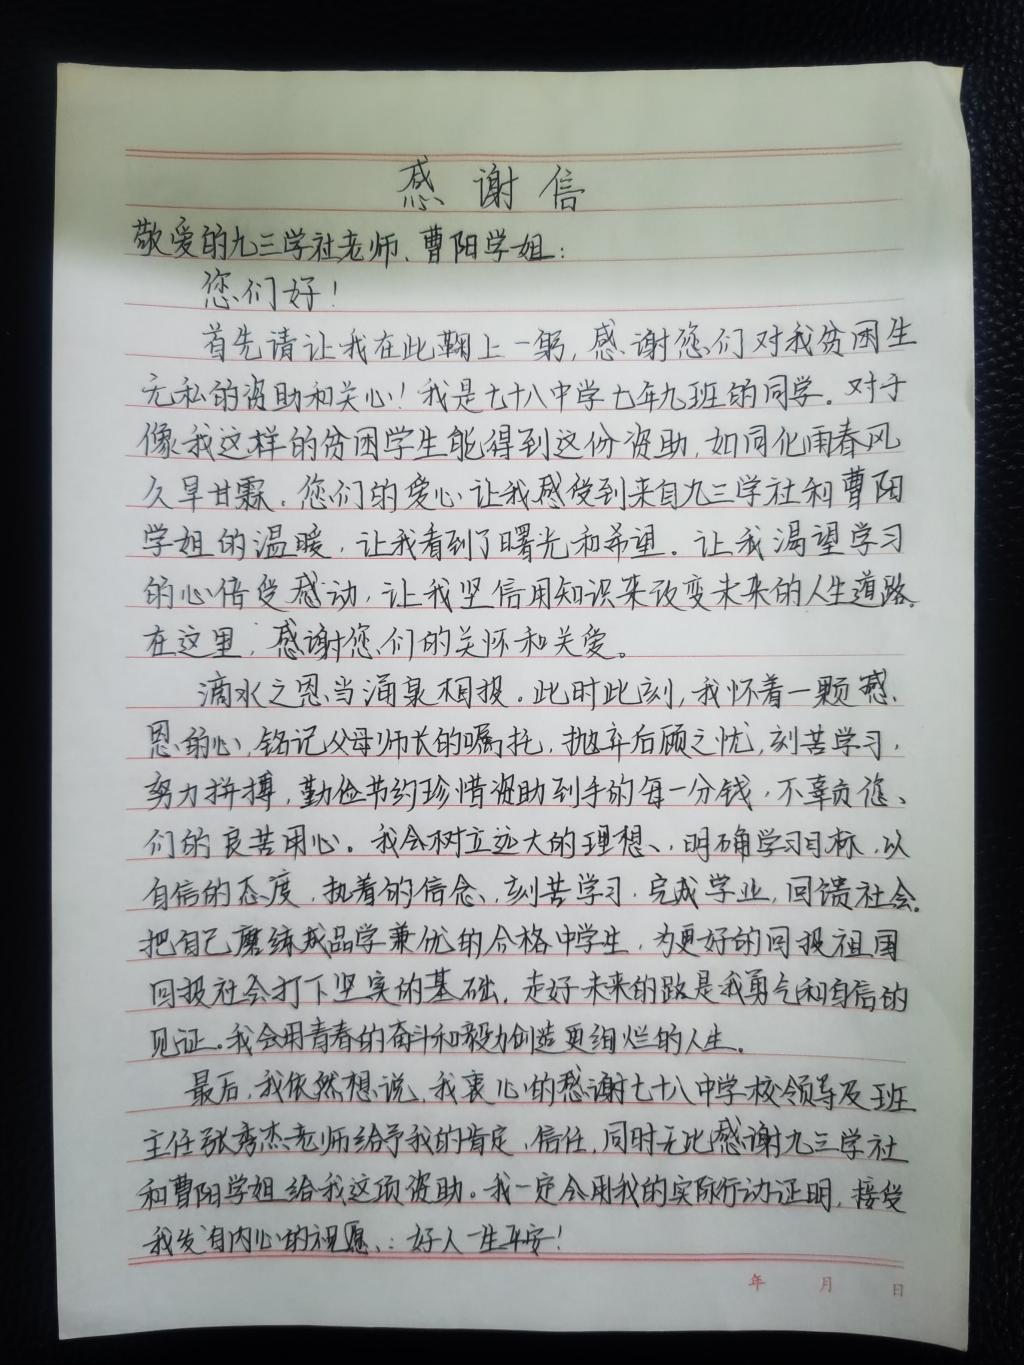 感谢信
敬爱的九三学社老师、曹阳学姐：
您们好！
首先请让我在此鞠上一躬，感谢您们对我贫困生
无私的资助和关心！我是七十八中学七年九班的同学。对于
像我这样的贫困学生能得到这份资助，如同化雨春风
久旱甘霖。您们的爱心让我感受到来自九三学社和曹阳
学姐的温暖，让我看到了曙光和希望。让我渴望学习
的心倍受感动，让我坚信用知识来改变未来的人生道路。
在这里，感谢您们的关怀和关爱。
滴水之恩当涌泉相报。此时此刻，我怀着一颗感
恩的心，铭记父母师长的嘱托，抛弃后顾之忧，刻苦学习，
努力拼搏，勤俭节约珍惜资助到手的每一分钱，不辜负您
们的良苦用心。我会树立远大的理想，明确学习目标，以
自信的态度，执着的信念，刻苦学习，完成学业，回馈社会。
把自己磨练成品学兼优的合格中学生，为更好的回报祖国
回报社会打下坚实的基础，走好未来的路是我勇气和自信的
见证。我会用青春的奋斗和毅力创造更绚烂的人生。
最后，我依然想说，我衷心的感谢七十八中学校领导及班
主任张秀杰老师给予我的肯定，信任，同时无比感谢九三学社
和曹阳学姐给我这项资助。我一定会用我的实际行动证明，接受
我发自内心的祝愿：好人一生平安！
年 月 日